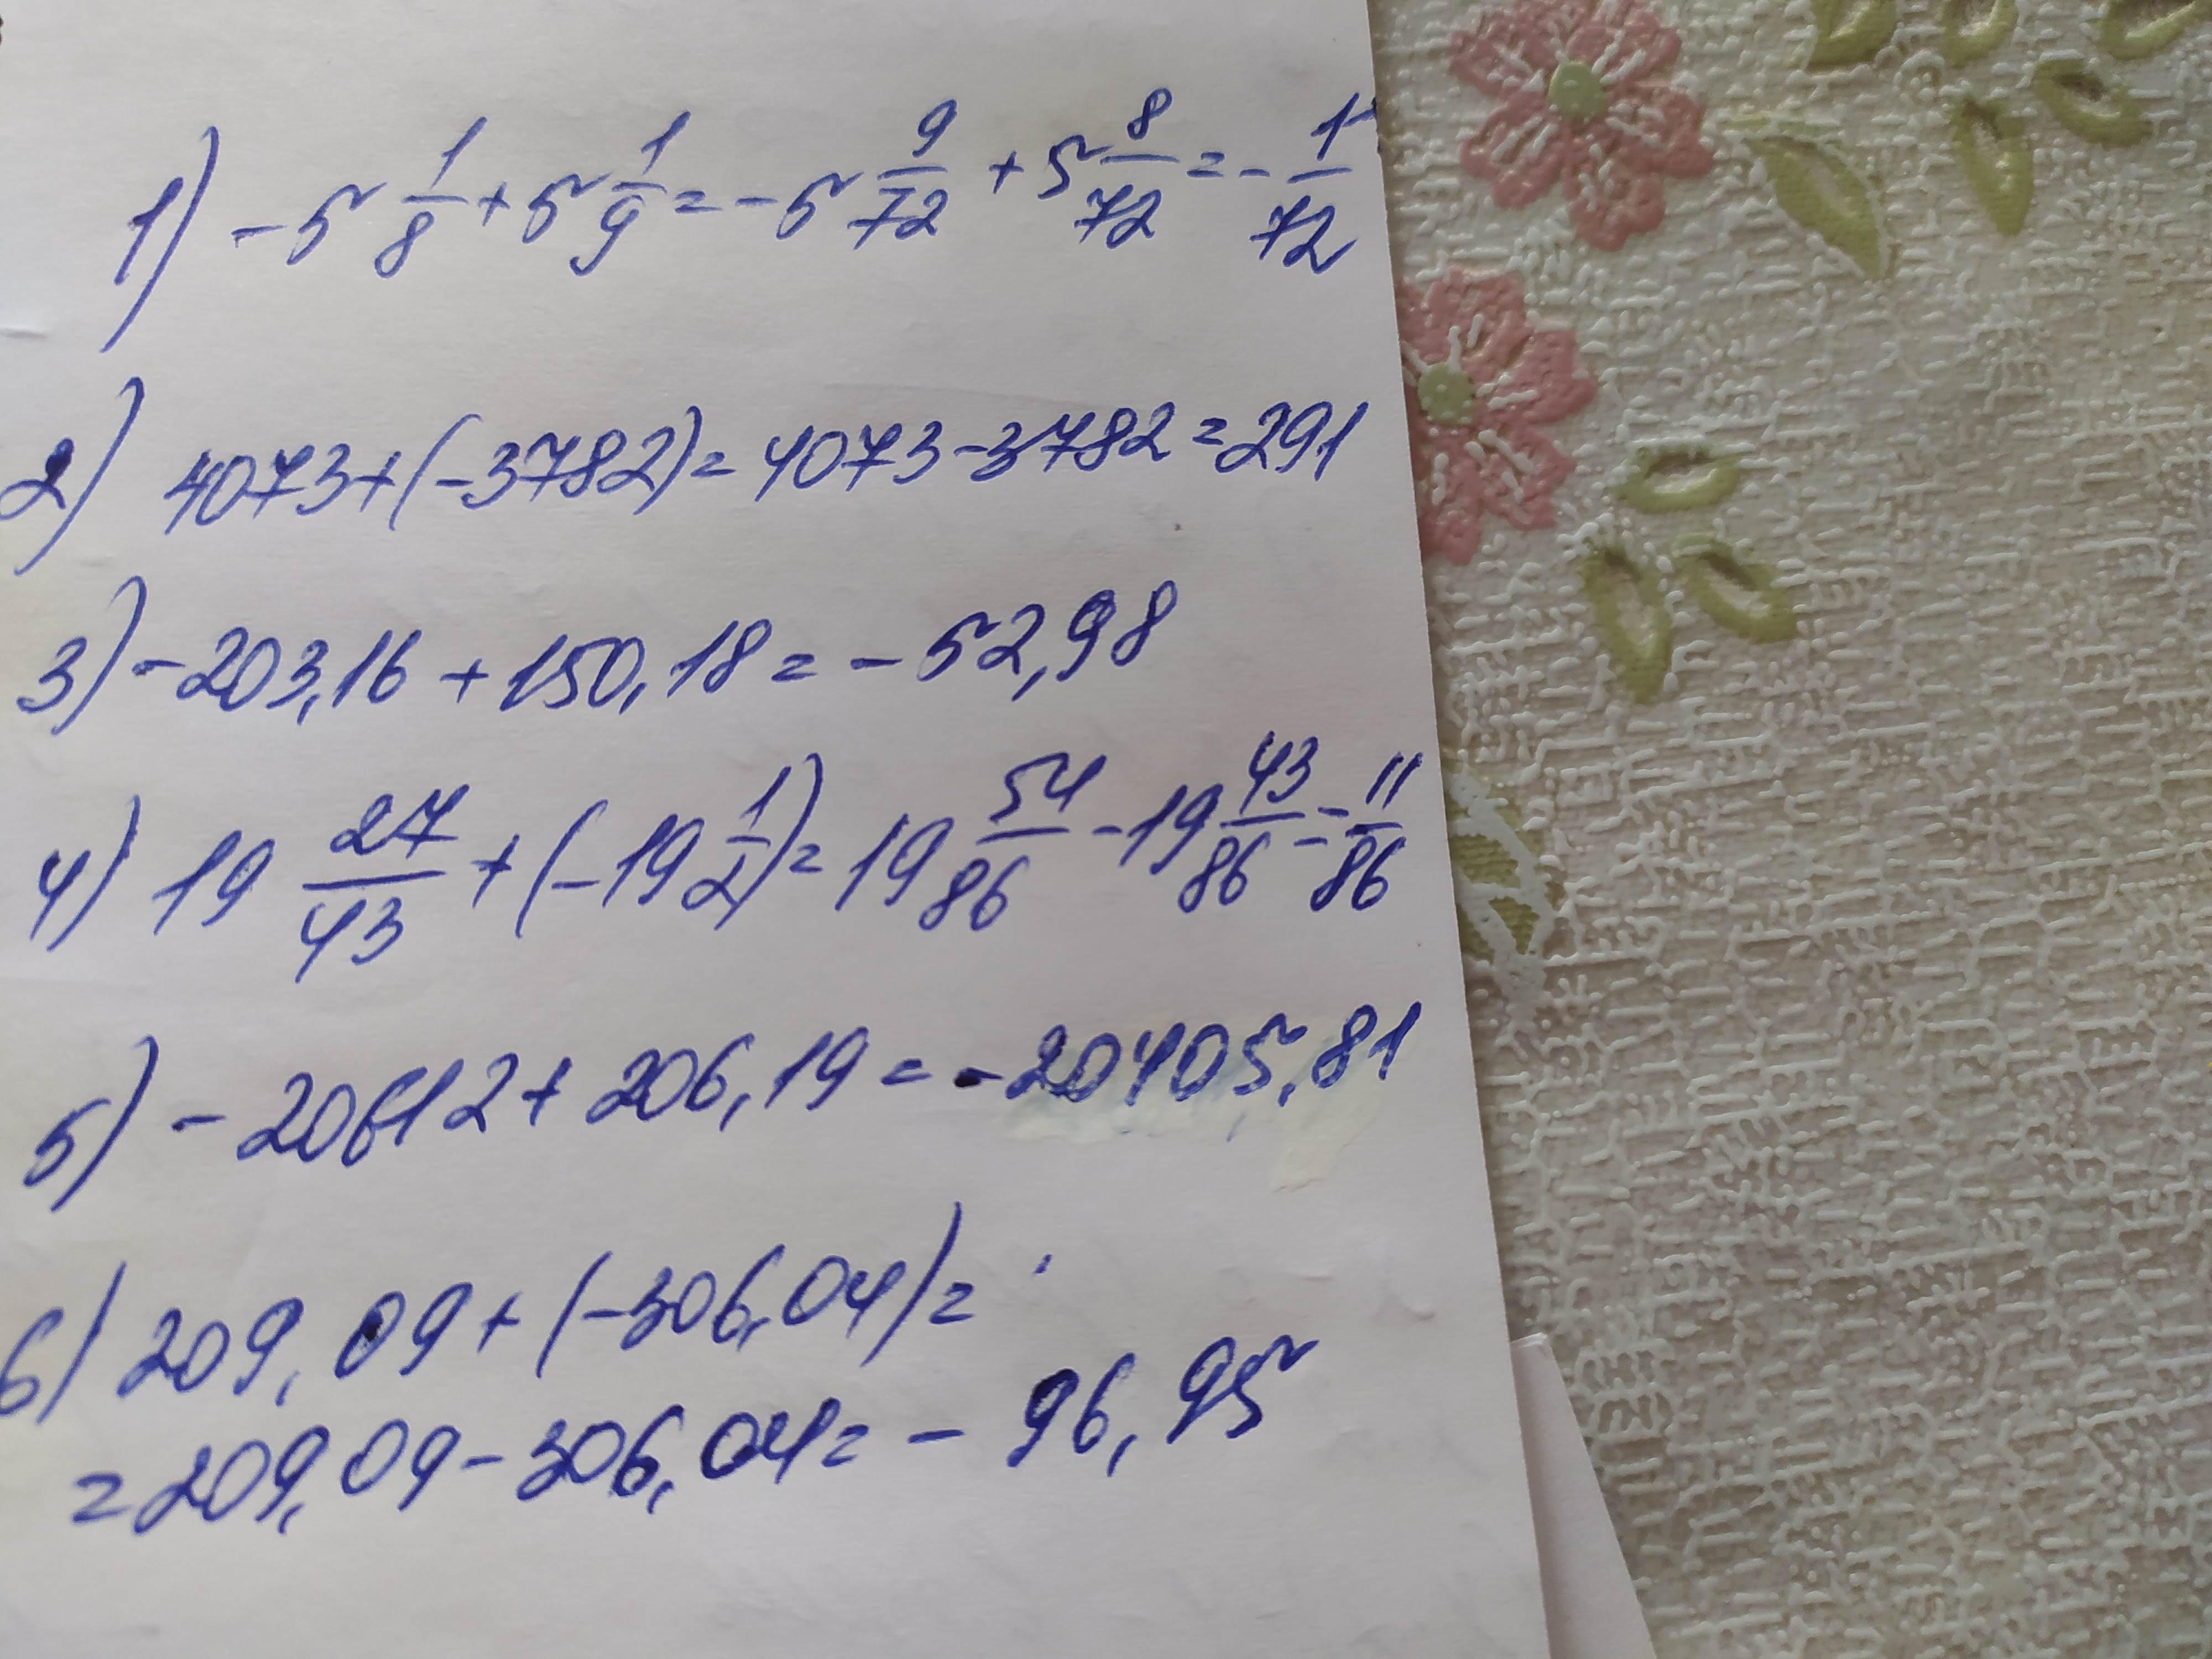 1) -5 1/8 + 5 1/9 = -5 9/72 + 5 8/72 = - 1/72
2) 4073+(-3782)= 4073-3782=291
3) -203,16 +150,18 = -52,98
4) 19 27/43 + (-19 1/2)= 19 54/86 -19 43/86 = 11/86
5) -20612+ 206,19 = -20405,81
6) 209,09+(-306,04)=
=209,09-306,04= - 96,95